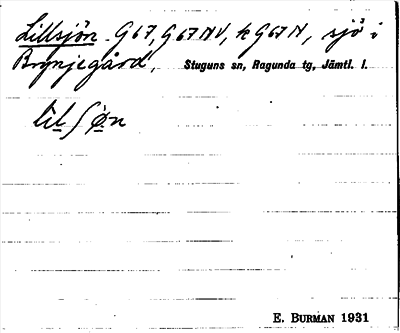 Lillsjön G67, G67NV, k G67N, sjö i
Brynjegård, Stuguns sn, Ragunda tg, Jämtl. l.
lilʃøn
E. BURMAN 1931